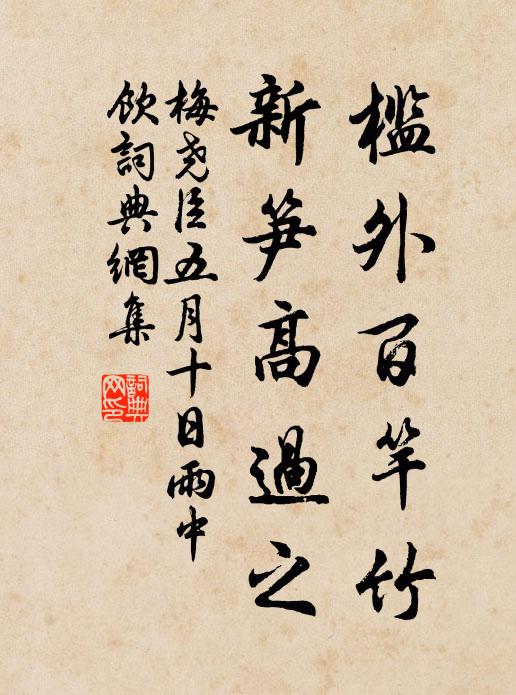 檻外百竿竹
新笋高過之
梅尧臣五月十日雨中
飲詞典網集
詞典网印